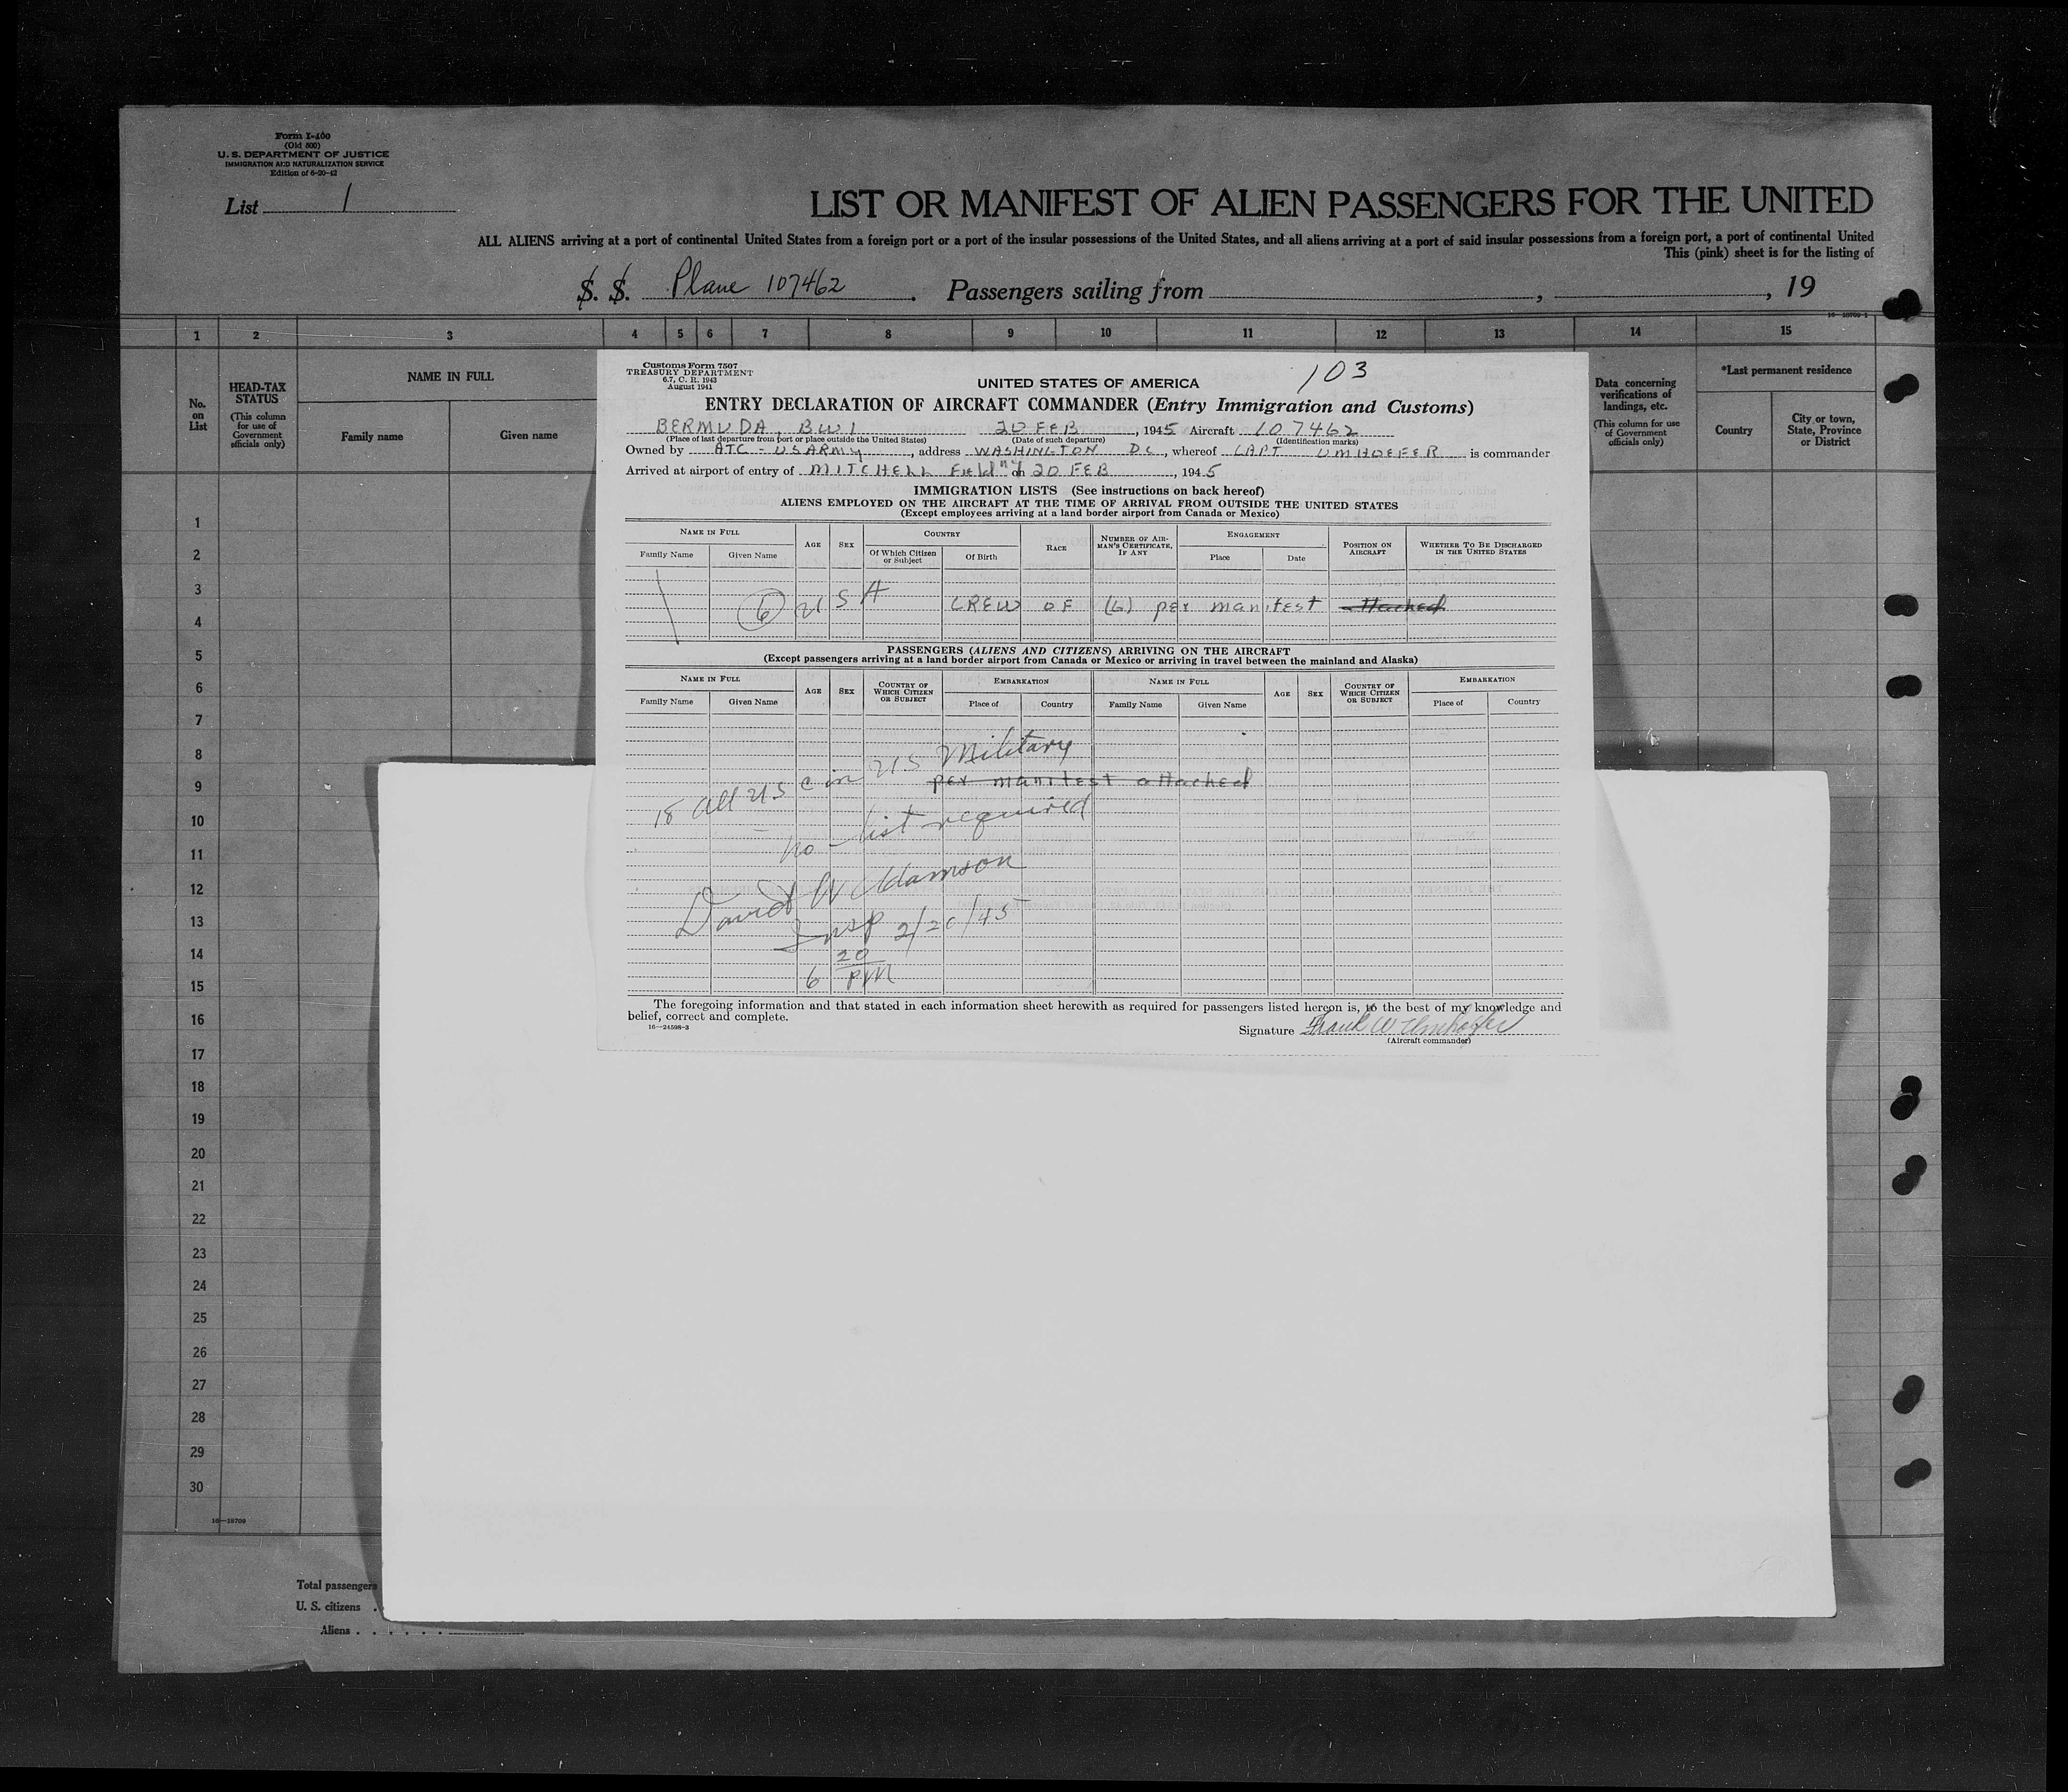 Form I-400
(Old 800)
U. S. DEPARTMENT OF JUSTICE
IMMIGRATION AND NATURALIZATION SERVICE
Edition of 6-20-42
List 1
LIST OR MANIFEST OF ALIEN PASSENGERS FOR THE UNITED
ALL ALIENS arriving at a port of continental United States from a foreign port or a port of the insular possessions of the United States, and all aliens arriving at a port of said insular possessions from a foreign port, a port of continental United
This (pink) sheet is for the listing of
S. S. Plane 107462. Passengers sailing from , , 19
16—18709-1
1 2 3 4 5 6 7 8 9 10 11 12 13 14 15
No. on List
HEAD-TAX STATUS
(This column for use of Government officials only)
NAME IN FULL
Family name Given name
Data concerning verifications of landings, etc.
(This column for use of Government officials only)
*Last permanent residence
Country
City or town, State, Province or District
Customs Form 7507
TREASURY DEPARTMENT
6.7, C. R. 1943
August 1941
103
UNITED STATES OF AMERICA
ENTRY DECLARATION OF AIRCRAFT COMMANDER (Entry Immigration and Customs)
BERMUDA, BWI 20 FEB, 1945 Aircraft 107462
(Place of last departure from port or place outside the United States) (Date of such departure) (Identification marks)
Owned by ATC - US ARMY, address WASHINGTON DC, whereof CAPT UMHOEFER is commander
Arrived at airport of entry of MITCHELL Field NY on 20 FEB, 1945
IMMIGRATION LISTS (See instructions on back hereof)
ALIENS EMPLOYED ON THE AIRCRAFT AT THE TIME OF ARRIVAL FROM OUTSIDE THE UNITED STATES
(Except employees arriving at a land border airport from Canada or Mexico)
NAME IN FULL
Family Name Given Name
AGE SEX
COUNTRY
Of Which Citizen or Subject Of Birth
RACE
NUMBER OF AIRMAN'S CERTIFICATE, IF ANY
ENGAGEMENT
Place Date
POSITION ON AIRCRAFT
WHETHER TO BE DISCHARGED IN THE UNITED STATES
6 USA CREW OF (6) per manifest attached
PASSENGERS (ALIENS AND CITIZENS) ARRIVING ON THE AIRCRAFT
(Except passengers arriving at a land border airport from Canada or Mexico or arriving in travel between the mainland and Alaska)
NAME IN FULL
Family Name Given Name
AGE SEX
COUNTRY OF WHICH CITIZEN OR SUBJECT
EMBARKATION
Place of Country
NAME IN FULL
Family Name Given Name
AGE SEX
COUNTRY OF WHICH CITIZEN OR SUBJECT
EMBARKATION
Place of Country
18 all US C in US Military
per manifest attached
no list required
David W Adamson
Insp 2/20/45
6 20 PM
The foregoing information and that stated in each information sheet herewith as required for passengers listed hereon is, to the best of my knowledge and
belief, correct and complete.
16—24598-3
Signature Frank W Umhoefer
(Aircraft commander)
1
2
3
4
5
6
7
8
9
10
11
12
13
14
15
16
17
18
19
20
21
22
23
24
25
26
27
28
29
30
16—18709
Total passengers
U. S. citizens .
Aliens . . . . . .